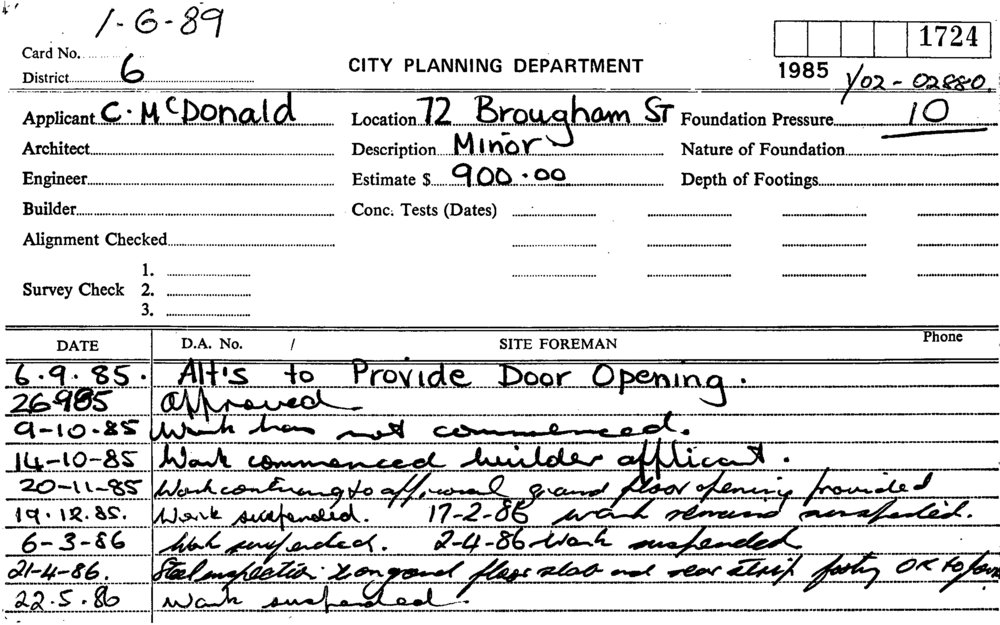 1-6-89
Card No.
District 6
CITY PLANNING DEPARTMENT
1724
1985 Y02-02880
Applicant C. McDonald Location 72 Brougham ST Foundation Pressure 10
Architect Description Minor Nature of Foundation
Engineer Estimate $ 900.00 Depth of Footings
Builder Conc. Tests (Dates)
Alignment Checked
1.
Survey Check 2.
3.
DATE D.A. No. / SITE FOREMAN Phone
6.9.85. Alt's to Provide Door Opening.
26985 approved
9-10-85 Work has not commenced.
14-10-85 Work commenced builder applicant.
20-11-85 Work continuing to approval ground floor opening provided
19.12.85. Work suspended. 17-2-86 work remains suspended.
6-3-86 Work suspended. 2-4-86 Work suspended
21-4-86. Steel inspection to ground floor slab and rear strip footing OK to
22.5.86 Work suspended.